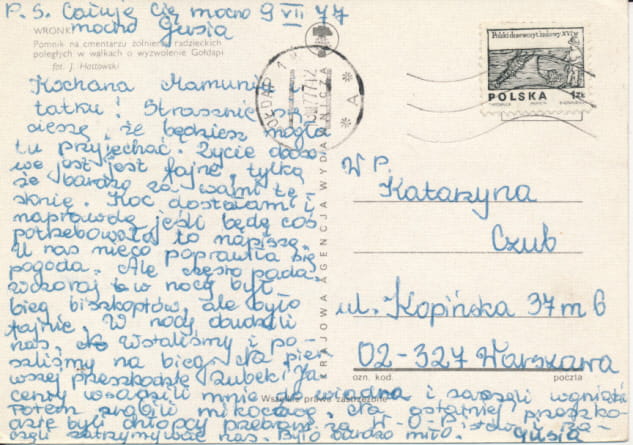 P.S. Całuję Cię mocno 9 VII 77
mocno Gusia
WRONKI
Pomnik na cmentarzu żołnierzy radzieckich
poległych w walkach o wyzwolenie Gołdapi
fot. J. Hottowski
Kochana Mamuniu
tatku! Strasznie się
cieszę, że będziesz mogła
tu przyjechać. Życie obozo-
we jest jest fajne, tylko
że bardzo za wami tę-
sknię. Koc dostałam i
naprawdę jeśli będę coś
potrzebowała to napiszę.
U nas nieco poprawiła się
pogoda. Ale często pada.
Wczoraj w nocy był
bieg biszkoptów, ale było
fajnie. W nocy obudzili
nas, wstaliśmy i po-
szliśmy na bieg. Na pier
wszej przeszkodzie
wsadzili mnie do i zaczęli
Potem zrobili mi Na ostatniej przeszko-
dzie byli chłopcy przebrani za W.O.P. i za-
częli zatrzymywać nas. Było bardzo miło.
Gusia
KRAJOWA AGENCJA WYDAWNICZA
Wszelkie prawa zastrzeżone
GOŁDAP 1
A
Polski drzeworyt ludowy XVI w.
POLSKA 1 ZŁ
W P.
Katarzyna
Czub
ul. Kopińska 37 m 6
02-327 Warszawa
ozn. kod. poczta